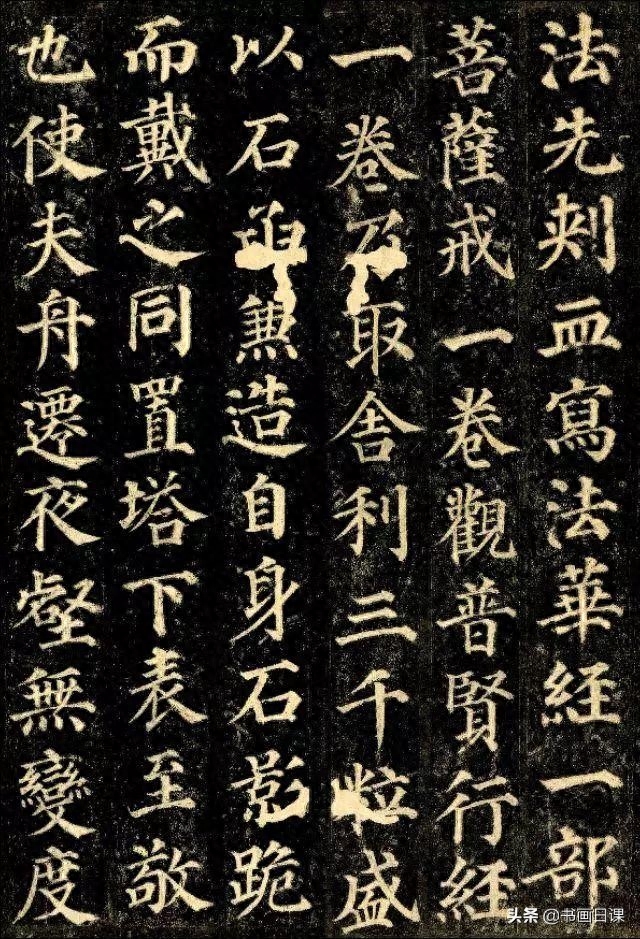 法先刺血寫法華經一部
菩薩戒一卷觀普賢行經
一卷乃取舍利三千粒盛
以石函兼造自身石影跪
而戴之同置塔下表至敬
也使夫舟遷夜壑無變度
头条 @书画日课